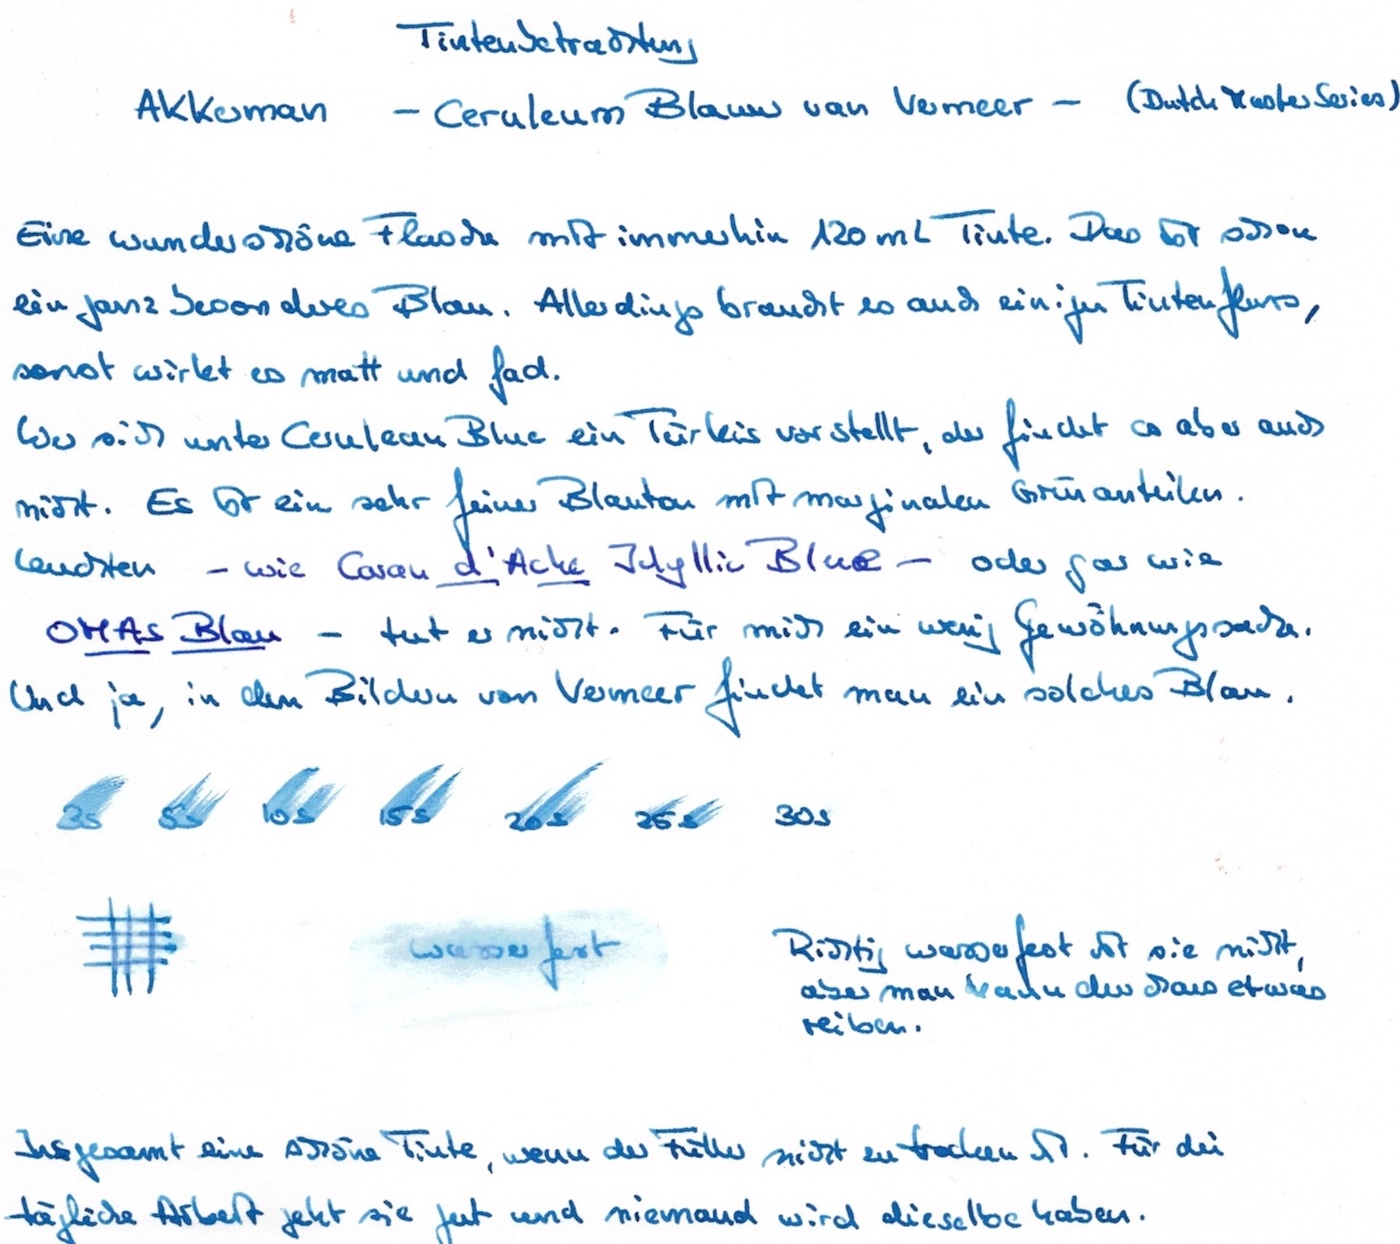 Tintenbetrachtung
AKKerman – Ceruleum Blauw van Vermeer – (Dutch Master Series)
Eine wunderschöne Flasche mit immerhin 120 mL Tinte. Das ist schon
ein ganz besonderes Blau. Allerdings braucht es auch einigen Tintenfluss,
sonst wirkt es matt und fad.
Wer sich unter Cerulean Blue ein Türkis vorstellt, der findet es aber auch
nicht. Es ist ein sehr feiner Blauton mit marginalen Grünanteilen.
Leuchten – wie Caran d'Ache Idyllic Blue – oder gar wie
OMAS Blau – tut er nicht. Für mich ein wenig Gewöhnungssache.
Und ja, in den Bildern von Vermeer findet man ein solches Blau.
5s 10s 15s 20s 25s 30s
wasserfest
Richtig wasserfest ist sie nicht,
aber man kann etwas
reiben.
Insgesamt eine schöne Tinte, wenn der Füller nicht zu trocken ist. Für die
tägliche Arbeit geht sie gut und niemand wird dieselbe haben.